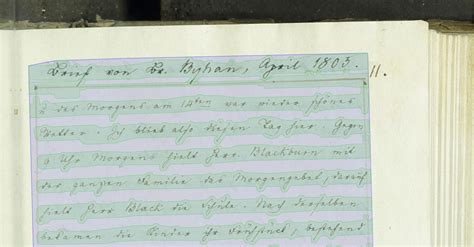 Brief von Br. Byhan, April 1803.
11.
des Morgens am 14ten war wieder schönes
Wetter. Ich blieb also diesen Tag hier. Gegen
9 Uhr Morgens hielt Herr Blackburn mit
der ganzen Familie das Morgengebet, darauf
hielt Herr Black die Schule. Nach derselben
bekamen die Kinder ihr Frühstück, bestehend